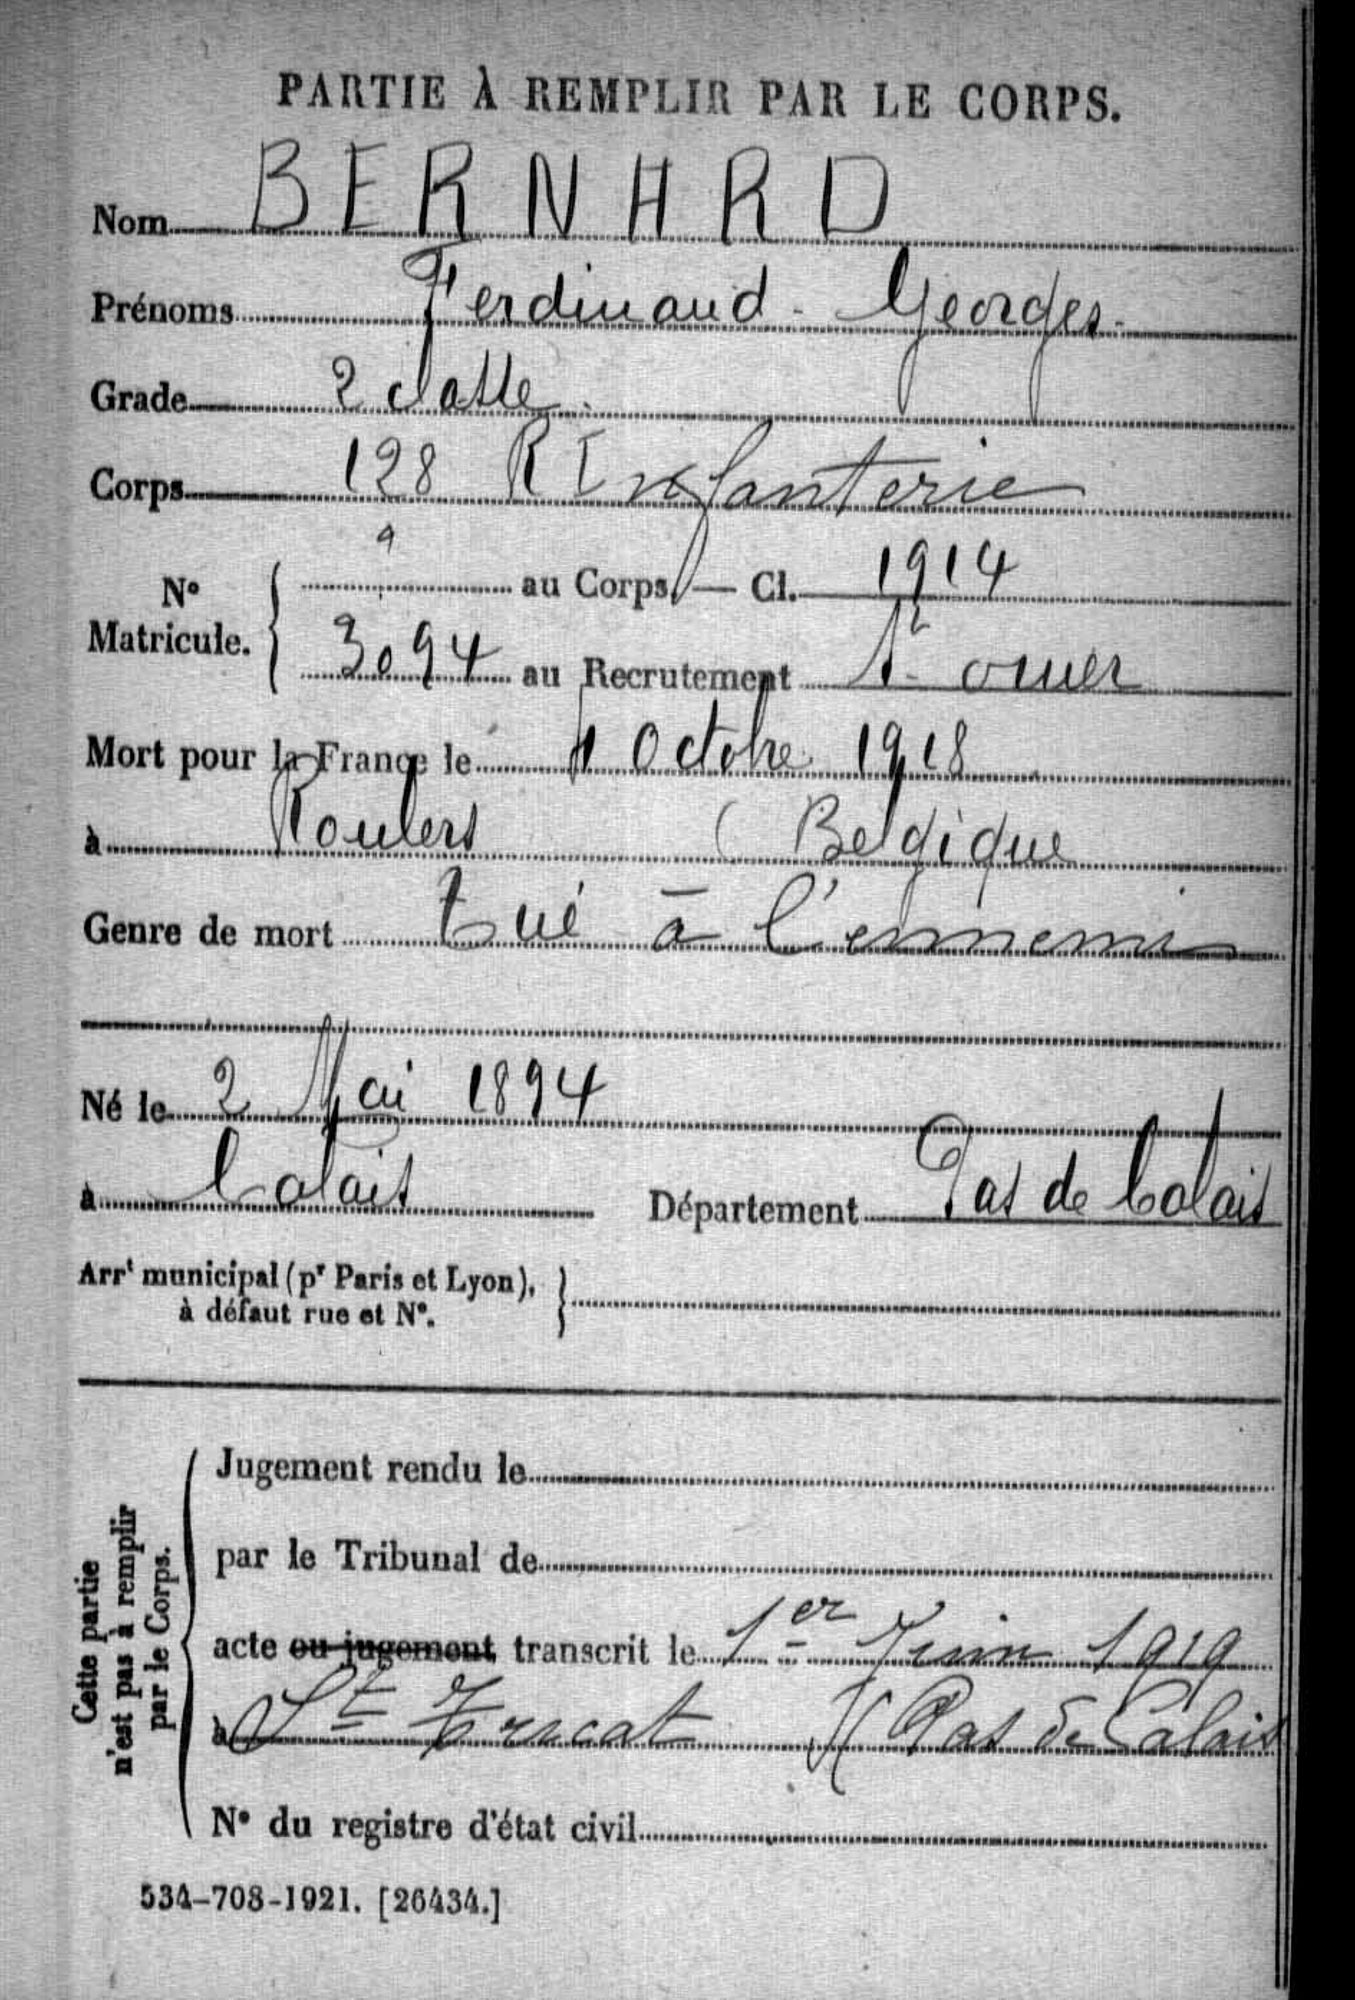 PARTIE À REMPLIR PAR LE CORPS.
Nom BERNARD
Prénoms Ferdinand - Georges.
Grade 2 classe.
Corps 128 R Infanterie
N° Matricule. { au Corps. — Cl. 1914
3094 au Recrutement St omer
Mort pour la France le 1 Octobre 1918
à Roulers (Belgique
Genre de mort tué à l'ennemi
Né le 2 Mai 1894
à Calais Département Pas de Calais
Arrt municipal (pr Paris et Lyon), }
à défaut rue et N°.
Cette partie
n'est pas à remplir
par le Corps.
Jugement rendu le
par le Tribunal de
acte ou jugement transcrit le 1er Juin 1919
à St Tricat (Pas de Calais
N° du registre d'état civil
534-708-1921. [26434.]